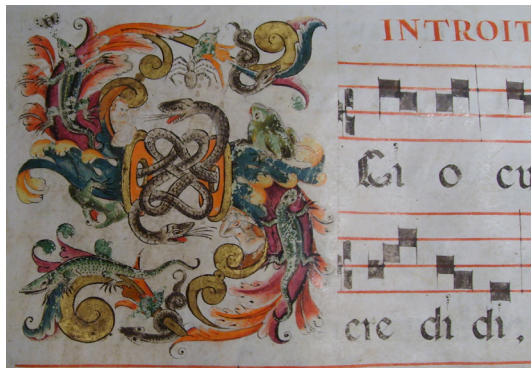 INTROIT
Ci o cu
cre di di,